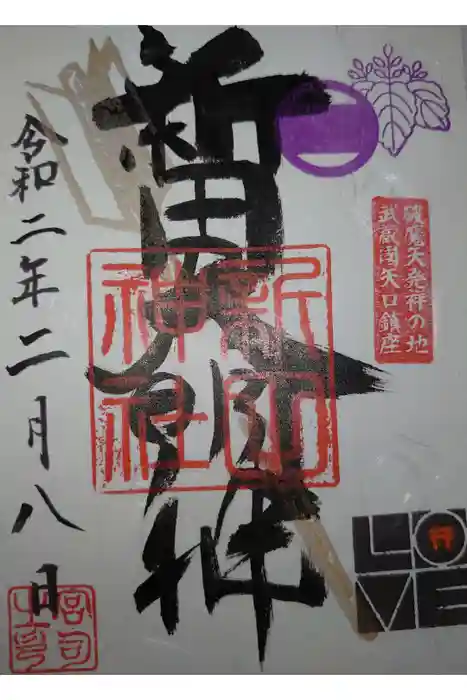 新田大明神
新田
神社
破魔矢発祥の地
武蔵國矢口鎮座
令和二年二月八日
宮司
之印
LO
VE